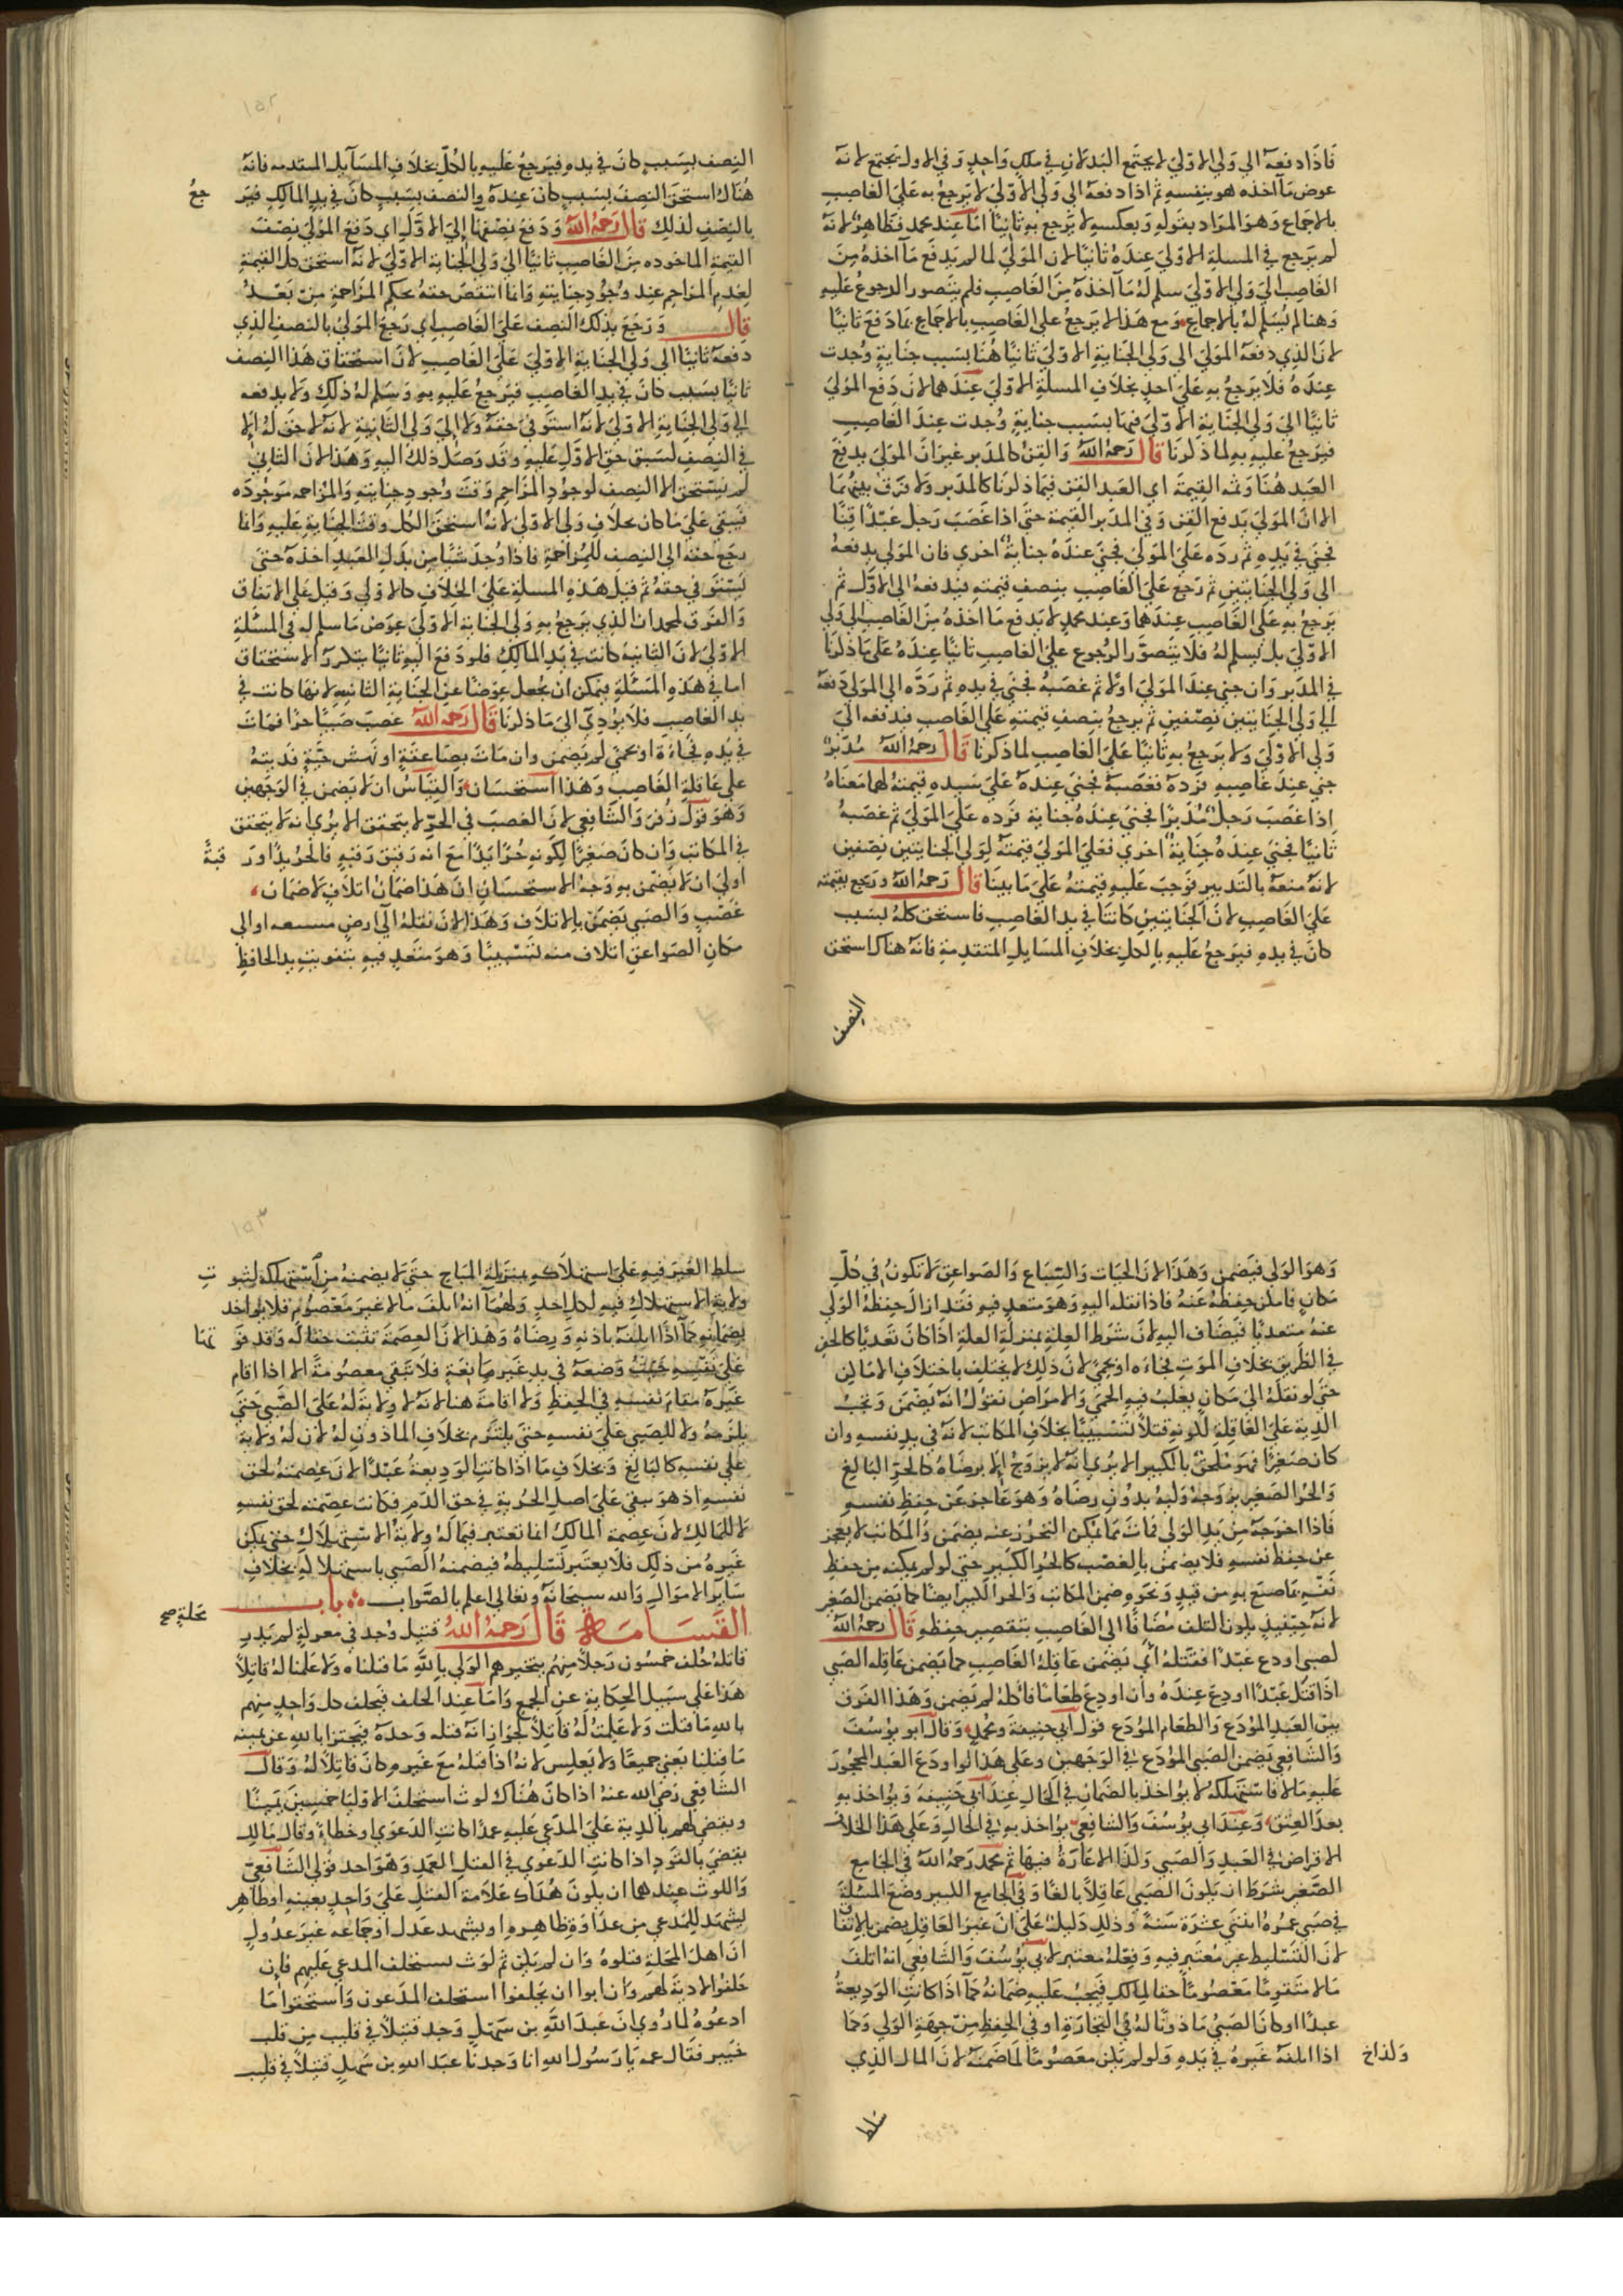 فاذا دفعه الي ولي الاولي لا يجتمع البدلان في ملك واحد وفي الاول يجتمع لانه
عوض ما اخذه هو بنفسه ثم اذا دفعه الي ولي الاولي لا يرجع به علي الغاصب
بالاجماع وهو المراد بقوله وبعكسه لا يرجع به ثانيا اما عند محمد فظاهر لانه
لم يرجع في المسلة الاولي عنده ثانيا لان المولي لما لم يدفع ما اخذه من
الغاصب الي ولي الاولي سلم له ما اخذه من الغاصب فلم يتصور الرجوع عليه
وهنا لم يسلم له بالاجماع ومع هذا لا يرجع علي الغاصب بالاجماع بما دفع ثانيا
لان الذي دفعه المولي الي ولي الجناية الاولي ثانيا هنا بسبب جناية وجدت
عنده فلا يرجع به علي احد بخلاف المسلة الاولي عندهما لان دفع المولي
ثانيا الي ولي الجناية الاولي فيها بسبب جناية وجدت عند الغاصب
فيرجع عليه به لما ذكرنا قال رحمه الله والقن كالمدبر غير ان المولي يدفع
العبد هنا وثمه القيمة اي العبد القن فيما ذكرنا كالمدبر ولا فرق بينهما
الا ان المولي يدفع القن وفي المدبر القيمة حتي اذا غصب رجل عبدا قنا
فجني في يده ثم رده علي المولي فجني عنده جناية اخري فان المولي يدفعه
الي ولي الجنايتين ثم رجع علي الغاصب بنصف قيمته فيدفعه الي الاول ثم
يرجع به علي الغاصب عندهما وعند محمد لا يدفع ما اخذه من الغاصب الي ولي
الاولي بل يسلم له فلا يتصور الرجوع علي الغاصب ثانيا عنده علي ما ذكرنا
في المدبر وان جني عند المولي اولا ثم غصبه فجني في يده ثم رده الي المولي دفعه
الي ولي الجنايتين نصفين ثم يرجع بنصف قيمته علي الغاصب فيدفعه الي
ولي الاولي ولا يرجع به ثانيا علي الغاصب لما ذكرنا قال رحمه الله مدبر
جني عند غاصبه فرده فغصبه فجني عنده علي سيده قيمته لهما معناه
اذا غصب رجل مدبرا فجني عنده جناية فرده علي المولي ثم غصبه
ثانيا فجني عنده جناية اخري فعلي المولي قيمته لولي الجنايتين نصفين
لانه منعه بالتدبير فوجب عليه قيمته علي ما بينا قال رحمه الله ورجع بقيمته
علي الغاصب لان الجنايتين كانتا في يد الغاصب فاستحق كله بسبب
كان في يده فيرجع عليه بالكل بخلاف المسايل المتقدمة فانه هناك استحق
النصف
١٥٢
النصف بسبب كان في يده فيرجع عليه بالكل بخلاف المسايل المتقدمه فانه
هناك استحق النصف بسبب كان عنده والنصف بسبب كان في يد المالك فير
جع
بالنصف لذلك قال رحمه الله ودفع نصفها الي الاول اي دفع المولي نصف
القيمة الماخوده من الغاصب ثانيا الي ولي الجناية الاولي لانه استحق كل القيمة
لعدم المزاحم عند وجود جنايته وانما انتقص حقه بحكم المزاحمة من بعد
قال ورجع بذلك النصف علي الغاصب اي رجع المولي بالنصف الذي
دفعه ثانيا الي ولي الجناية الاولي علي الغاصب لان استحقاق هذا النصف
ثانيا بسبب كان في يد الغاصب فيرجع عليه به وسلم له ذلك ولا يدفعه
الي ولي الجناية الاولي لانه استوفي حقه ولا الي ولي الثانية لانه لا حق له الا
في النصف لسبق حق الاول عليه وقد وصل ذلك اليه وهذا لان الثاني
لم يستحق الا النصف لوجود المزاحم وقت وجود جنايته والمزاحمه موجوده
فبقي علي ما كان بخلاف ولي الاولي لانه استحق الكل وقت الجناية عليه وانما
رجع حقه الي النصف للمزاحمة فاذا وجد شيا من بدل العبد اخذه حتي
يستوفي حقه ثم قيل هذه المسلة علي الخلاف كالاولي وقيل علي الاتفاق
والفرق لمحمد ان الذي يرجع به ولي الجناية الاولي عوض ما سلم له في المسئلة
الاولي لان الثانية كانت في يد المالك فلو دفع اليه ثانيا يتكرر الاستحقاق
اما في هذه المسئلة فيمكن ان يجعل عوضا عن الجناية الثانيه لانها كانت في
يد الغاصب فلا يؤدي الي ما ذكرنا قال رحمه الله غصب صبيا حرا فمات
في يده فجاءة او بحمي لم يضمن وان مات بصاعقة او نهش حية فديته
علي عاقلة الغاصب وهذا استحسان والقياس ان لا يضمن في الوجهين
وهو قول زفر والشافعي لان الغصب في الحر لا يتحقق الا يري انه لا يتحقق
في المكاتب وان كان صغيرا لكونه حرا يدا مع انه رقيق رقبه فالحر يدا ور
قبة
اولي ان لا يضمن به وجه الاستحسان ان هذا ضمان اتلاف لا ضمان
غصب والصبي يضمن بالاتلاف وهذا لان نقله الي ارض مسبعه او الي
مكان الصواعق اتلاف منه تسبيبا وهو متعد فيه بتفويت يد الحافظ
وهو الولي فيضمن وهذا لان الحيات والسباع والصواعق لا تكون في كل
مكان فامكن حفظه عنه فاذا نقله اليه وهو متعد فيه فقد ازال حفظه الولي
عنه متعديا فيضاف اليه لان شرط العلة بمنزلة العلة اذا كان تعديا كالحفر
في الطريق بخلاف الموت فجاءه او بحمي لان ذلك لا يختلف باختلاف الاماكن
حتي لو نقله الي مكان يغلب فيه الحمي والامراض نقول انه يضمن وتجب
الدية علي العاقلة لكونه قتلا تسبيبا بخلاف المكاتب لانه في يد نفسه وان
كان صغيرا فهو ملحق بالكبير الا يري انه لا يزوج الا برضاه كالحر البالغ
والحر الصغير يزوجه وليه بدون رضاه وهو عاجز عن حفظ نفسه
فاذا اخرجه من يد الولي فمات مما يمكن التحرز عنه يضمن والمكاتب لا يعجز
عن حفظ نفسه فلا يضمن بالغصب كالحر الكبير حتي لو لم يمكنه من حفظ
نفسه بما صنع به من قيد ونحوه ضمن المكاتب والحر الكبير ايضا كما يضمن الصغير
لانه حينيذ يكون التلف مضافا الي الغاصب بتقصير حفظه قال رحمه الله
لصبي اودع عبدا فقتله اي يضمن عاقلة الغاصب كما يضمن عاقله الصبي
اذا قتل عبدا اودع عنده وان اودع طعاما فاكله لم يضمن وهذا الفرق
بين العبد المودع والطعام المودع قول ابي حنيفة ومحمد وقال ابو يوسف
والشافعي يضمن الصبي المودع في الوجهين وعلي هذا لو اودع العبد المحجور
عليه مالا فاستهلكه لا يواخذ بالضمان في الحال عند ابي حنيفه ويواخذ به
بعد العتق وعند ابي يوسف والشافعي يواخذ به في الحال وعلي هذا الخلاف
الاقراض في العبد والصبي وكذا الاعارة فيها ثم محمد رحمه الله في الجامع
الصغير شرط ان يكون الصبي عاقلا بالغا وفي الجامع الكبير وضع المسئلة
في صبي عمره اثنتي عشرة سنة وذلك دليل علي ان غير العاقل يضمن بالاتفاق
لان التسليط غير معتبر فيه وفعله معتبر لابي يوسف والشافعي انه اتلف
مالا متقوما معصوما حقا لمالك فيجب عليه ضمانه كما اذا كانت الوديعة
عبدا او كان الصبي ماذونا له في التجارة او في الحفظ من جهة الولي وكما
اذا اتلفه غيره في يده ولو لم يكن معصوما لما ضمنه لان المال الذي
سلط
١٥٣
سلط الغير فيه علي استهلاكه بمنزلة المباح حتي لا يضمنه من استهلكه لثبو
ت
ولاية الاستهلاك فيه لكل احد ولهما انه اتلف مالا غير معصوم فلا يواخد
بضمانه كما اذا اتلفه باذنه ورضاه وهذا لان العصمة تثبت حقا له وقد فو
تها
علي نفسه حيث وضعه في يد غير مانعة فلا تبقي معصومة الا اذا اقام
غيره مقام نفسه في الحفظ ولا اقامة هنا لانه لا ولاية له علي الصبي حتي
يلزمه ولا للصبي علي نفسه حتي يلتزم بخلاف الماذون له لان له ولاية
علي نفسه كالبالغ وبخلاف ما اذا كانت الوديعة عبدا لان عصمته لحق
نفسه اذ هو مبقي علي اصل الحرية في حق الدم فكانت عصمته لحق نفسه
لا للمالك لان عصمة المالك انما تعتبر فيما له ولاية الاستهلاك حتي يمكن
غيره من ذلك فلا يعتبر تسليطه فيضمنه الصبي باستهلاكه بخلاف
ساير الاموال والله سبحانه وتعالي اعلم بالصواب باب
القسامة قال رحمه الله قتيل وجد في محلة لم يدر
محلة صح
قاتله حلف خمسون رجلا منهم يتخيرهم الولي بالله ما قتلناه ولا علمنا له قاتلا
هذا علي سبيل الحكاية عن الجمع واما عند الحلف فيحلف كل واحد منهم
بالله ما قتلت ولا علمت له قاتلا لجواز انه قتله وحده فيجتزا بالله عن يمينه
ما قتلنا يعني جميعا ولا يعكس لانه اذا قتله مع غيره كان قاتلا له وقال
الشافعي رضي الله عنه اذا كان هناك لوث استحلف الاوليا خمسين يمينا
ويقضي لهم بالدية علي المدعي عليه عمدا كانت الدعوي او خطاء وقال مالك
يقضي بالقود اذا كانت الدعوي في القتل العمد وهو احد قولي الشافعي
واللوث عندهما ان يكون هناك علامة القتل علي واحد بعينه او ظاهر
يشهد للمدعي من عداوة ظاهرة او يشهد عدل او جماعه غير عدول
ان اهل المحلة قتلوه وان لم يكن ثم لوث يستحلف المدعي عليهم فان
حلفوا لا دية لهم وان ابوا ان يحلفوا استحلف المدعون واستحقوا ما
ادعوه لما روي ان عبد الله بن سهل وجد قتيلا في قليب من قلب
خيبر فقال عمه يا رسول الله انا وجدنا عبد الله بن سهل قتيلا في قليب
ولذا خ